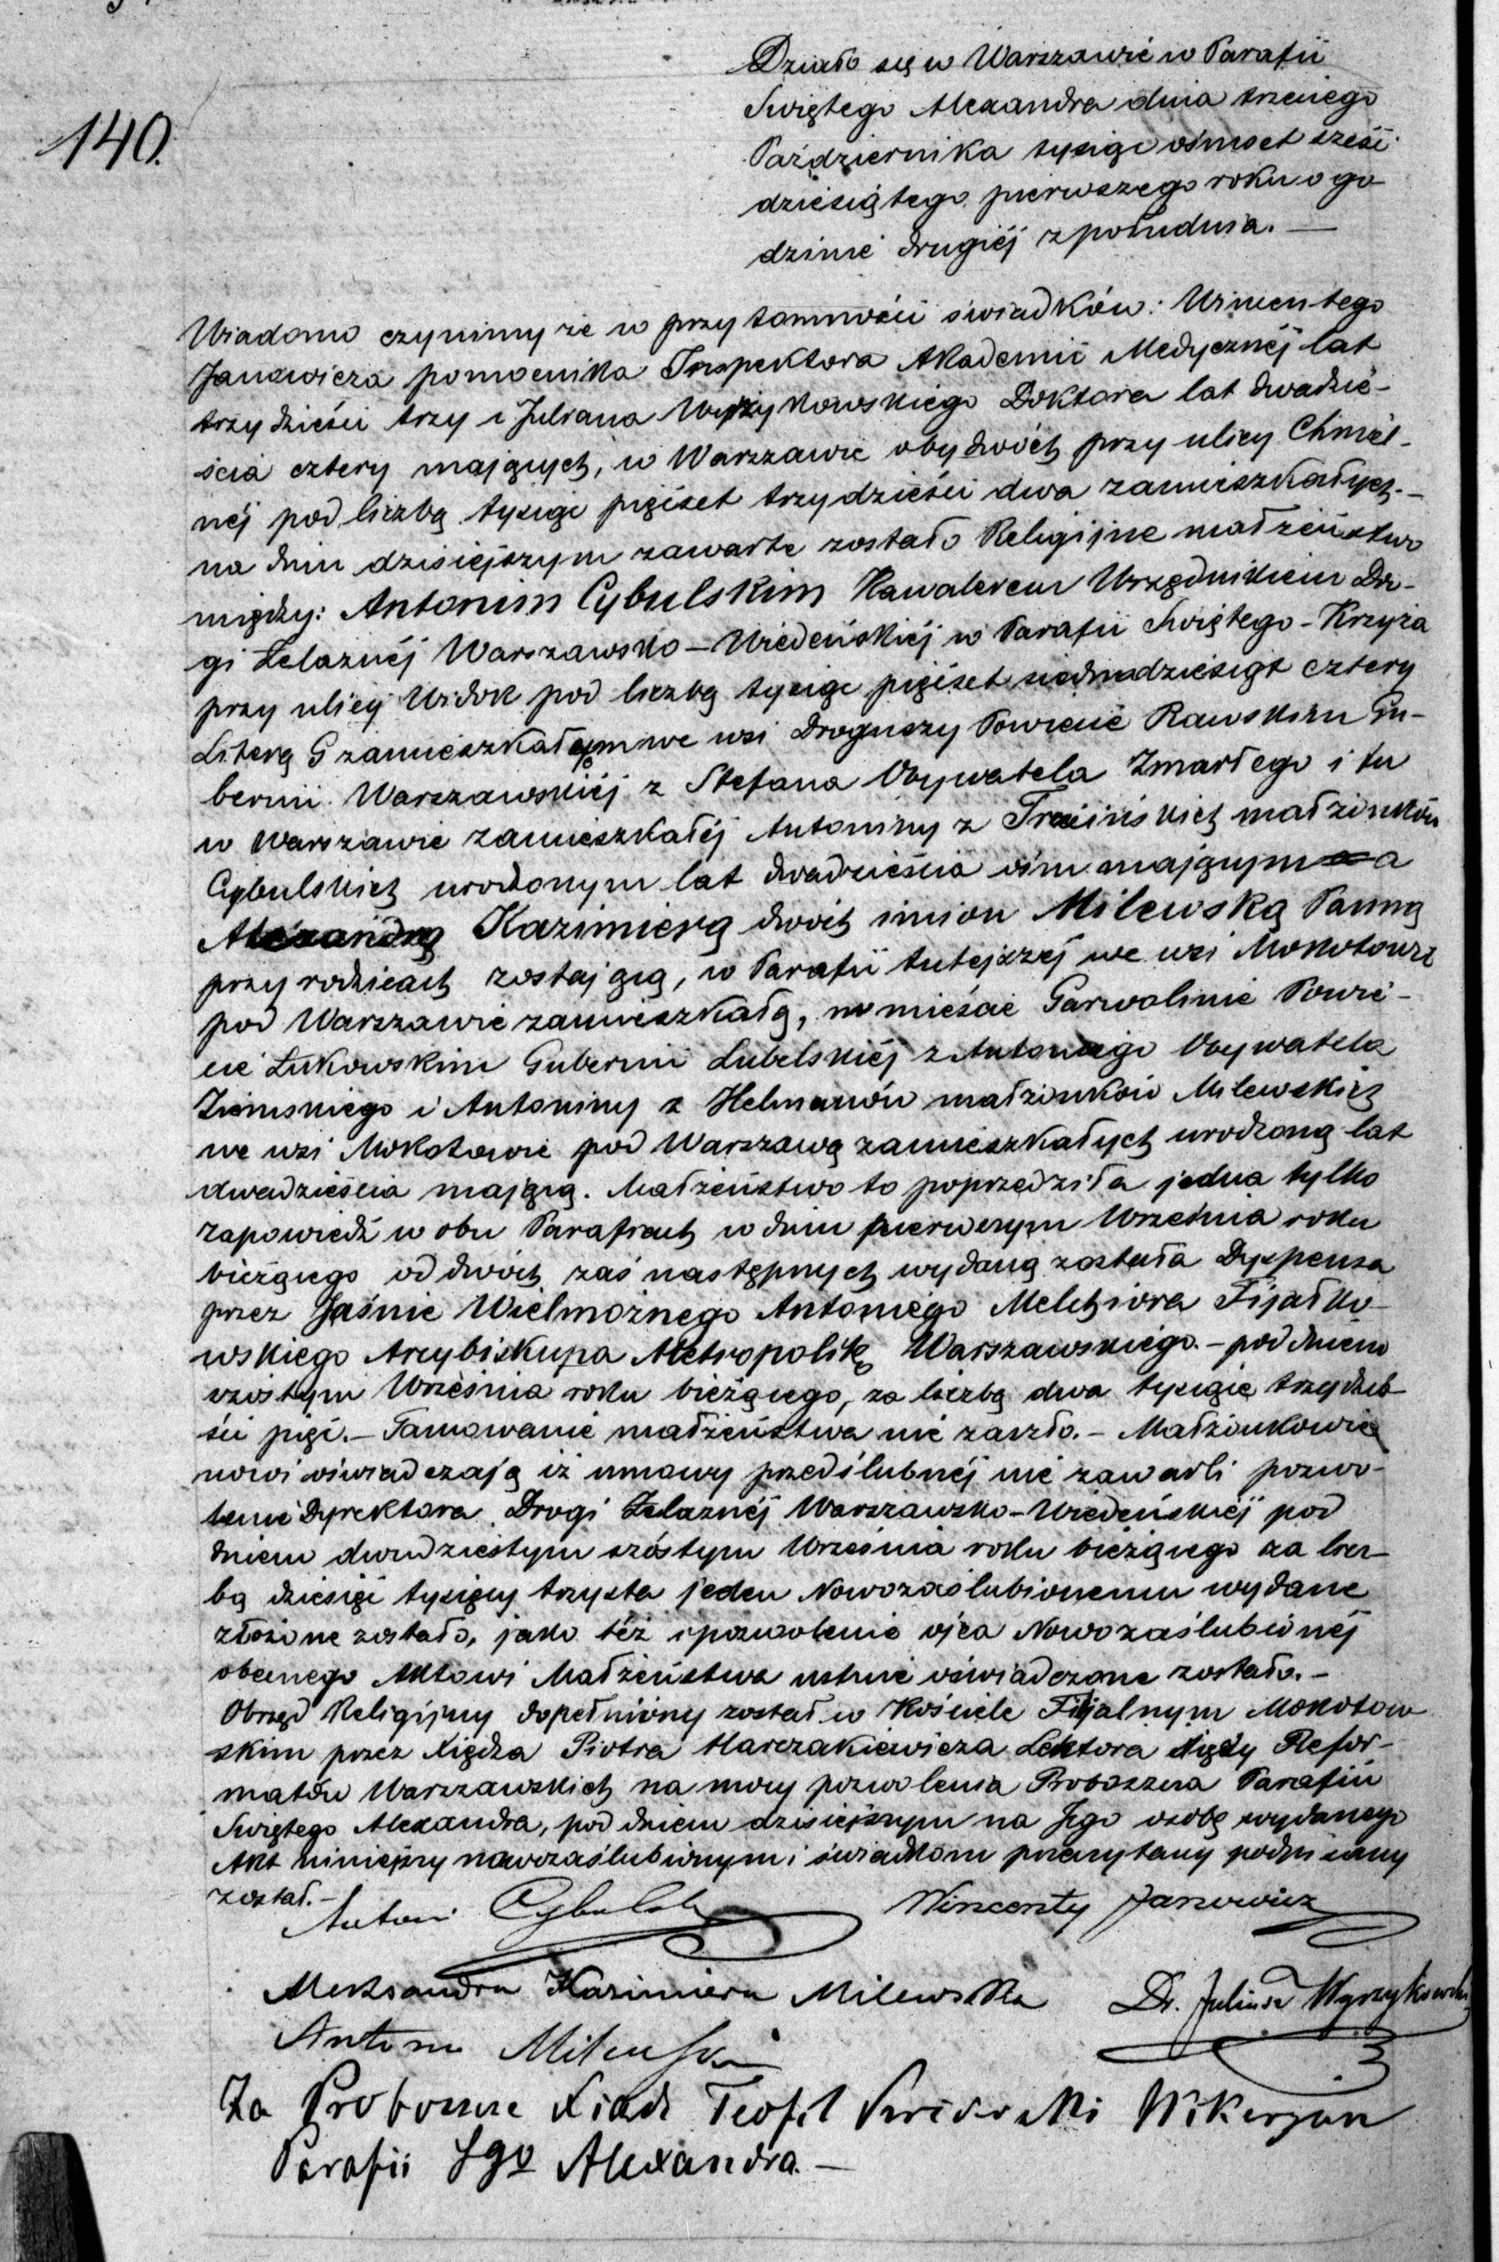 140.
Działo się w Warszawie w Parafii
Świętego Alexandra dnia trzeciego
Października tysiąc ośmset sześć
dziesiątego pierwszego roku o go
dzinie drugiéj z południa. —
Wiadomo czynimy że w przytomności świadków: Wincentego
Janowicza pomocnika Inspektora Akademii Medycznéj lat
trzydzieści trzy i Juliana Wyrzykowskiego Doktora lat dwadzie-
ścia cztery mających, w Warszawie obydwóch przy ulicy Chmiel-
néj pod liczbą tysiąc pięćset trzydzieści dwa zamieszkałych.–
na dniu dzisiejszym zawarte zostało Religijne małżeństwo
między: Antonim Cybulskim Kawalerem Urzędnikiem Dro-
gi Żelaznéj Warszawsko–Wiedeńskiéj w Parafii Świętego–Krzyża
przy ulicy Widok pod liczbą tysiąc pięćset siedmdziesiąt cztery
Literą G zamieszkałym we wsi Droguszy Powiecie Rawskim Gu-
bernii Warszawskiéj z Stefana Obywatela Zmarłego i tu
w Warszawie zamieszkałéj Antoniny z małżonków
Cybulskich urodzonym lat dwadzieścia ośm mającym a
Alexandrą Kazimierą dwóch imion Milewską Panną
przy rodzicach zostającą, w Parafii tutejszéj we wsi Mokotowie
pod Warszawie zamieszkałą, w mieście Garwolinie Powie-
cie Łukowskim Gubernii Lubelskiéj z Antoniego Obywatela
Ziemskiego i Antoniny z Helmanów małżonków Milewskich
we wsi Mokotowie pod Warszawą zamieszkałych urodzoną lat
dwadzieścia mającą. Małżeństwo to poprzedziła jedna tylko
zapowiedź w obu Parafiach w dniu pierwszym Września roku
bieżącego od dwóch zaś następnych wydaną została Dyspensa
przez Jaśnie Wielmożnego Antoniego Melchiora Fijałko-
wskiego Arcybiskupa Metropolitę Warszawskiego.– pod dniem
szóstym Września roku bieżącego, za liczbą dwa tysiące trzydzie-
ści pięć.– Tamowanie małżeństwa nie zaszło.– Małżonkowie
nowi oświadczają iż umowy przedślubnéj nie zawarli pozwo-
lenie Dyrektora Drogi Żelaznéj Warszawsko–Wiedeńskiéj pod
dniem dwudziestym szóstym Września roku bieżącego za licz–
bą dziesięć tysięcy trzysta jeden Nowozaślubionemu wydane
złożone zostało, jako téż i pozwolenie ojca Nowozaślubionéj
obecnego Aktowi Małżeństwa ustnie oświadczone zostało.–
Obrzęd Religijny dopełniony został w Kościele Filjalnym Mokotow
skim przez Xiędza Piotra Marczakiewicza Lektora Xięży Refor-
matów Warszawskich na mocy pozwolenia Proboszcza Parafii
Świętego Alexandra, pod dniem dzisiejszym na Jego osobę wydanego
Akt niniejszy nowozaślubionym i świadkom przeczytany podpisany
został.–
Antoni Cybulski Wincenty Janowicz
Aleksandra Kazimiera Milewska Dr. Juliusz Wyrzykowski
Antoni Milewski
Za Proboszcza Xiądz Teofil Wikaryusz
Parafii Sgo Alexandra.–